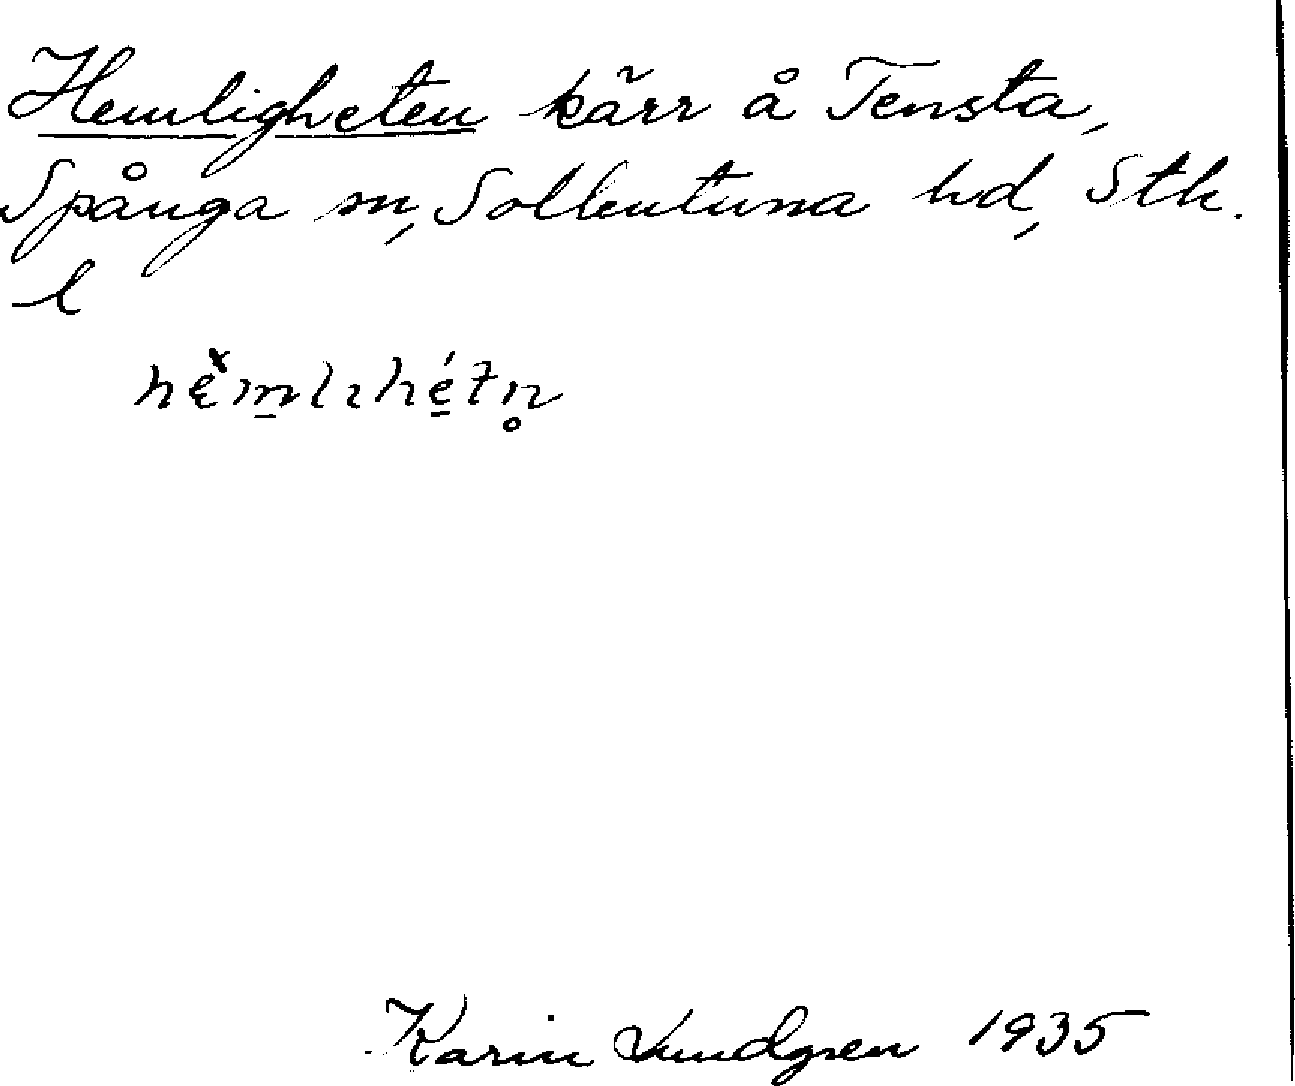 Hemligheten kärr å Tensta,
Spånga sn, Sollentuna hd, Sth.
l
hæ̌m̲lıhé̲tn̥
Karin Lundgren 1935